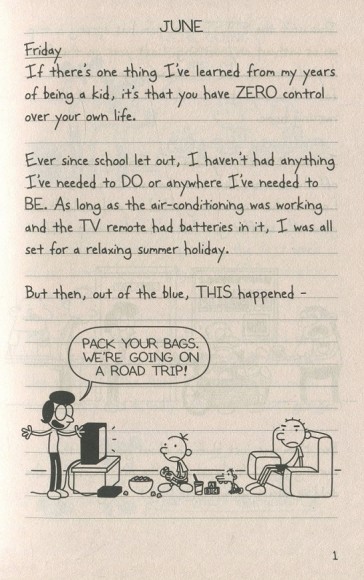 JUNE
Friday
If there's one thing I've learned from my years
of being a kid, it's that you have ZERO control
over your own life.
Ever since school let out, I haven't had anything
I've needed to DO or anywhere I've needed to
BE. As long as the air-conditioning was working
and the TV remote had batteries in it, I was all
set for a relaxing summer holiday.
But then, out of the blue, THIS happened -
PACK YOUR BAGS.
WE'RE GOING ON
A ROAD TRIP!
1